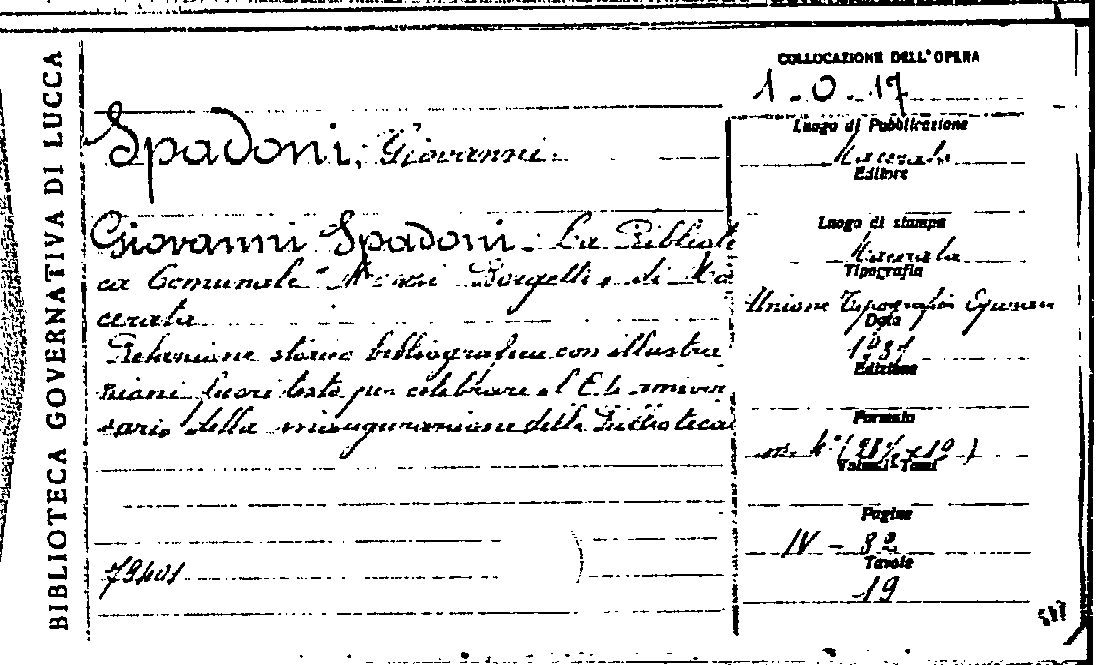 BIBLIOTECA GOVERNATIVA DI LUCCA
COLLOCAZIONE DELL'OPERA
1-0-17
Spadoni, Giovanni.
Luogo di Pubblicazione
Macerata
Editore
Giovanni Spadoni. La Bibliote
ca Comunale "Mozzi Borgetti" di Ma
cerata
Relazione storico bibliografica con illustra
zioni fuori testo per celebrare il anniver
sario della inaugurazione della Biblioteca
Luogo di stampa
Macerata
Tipografia
Unione Tipografia
Data
1931
Edizione
Formato
in 4° (28½ x 19)
Volumi-Tomi
Pagine
IV - 82
Tavole
19
79401